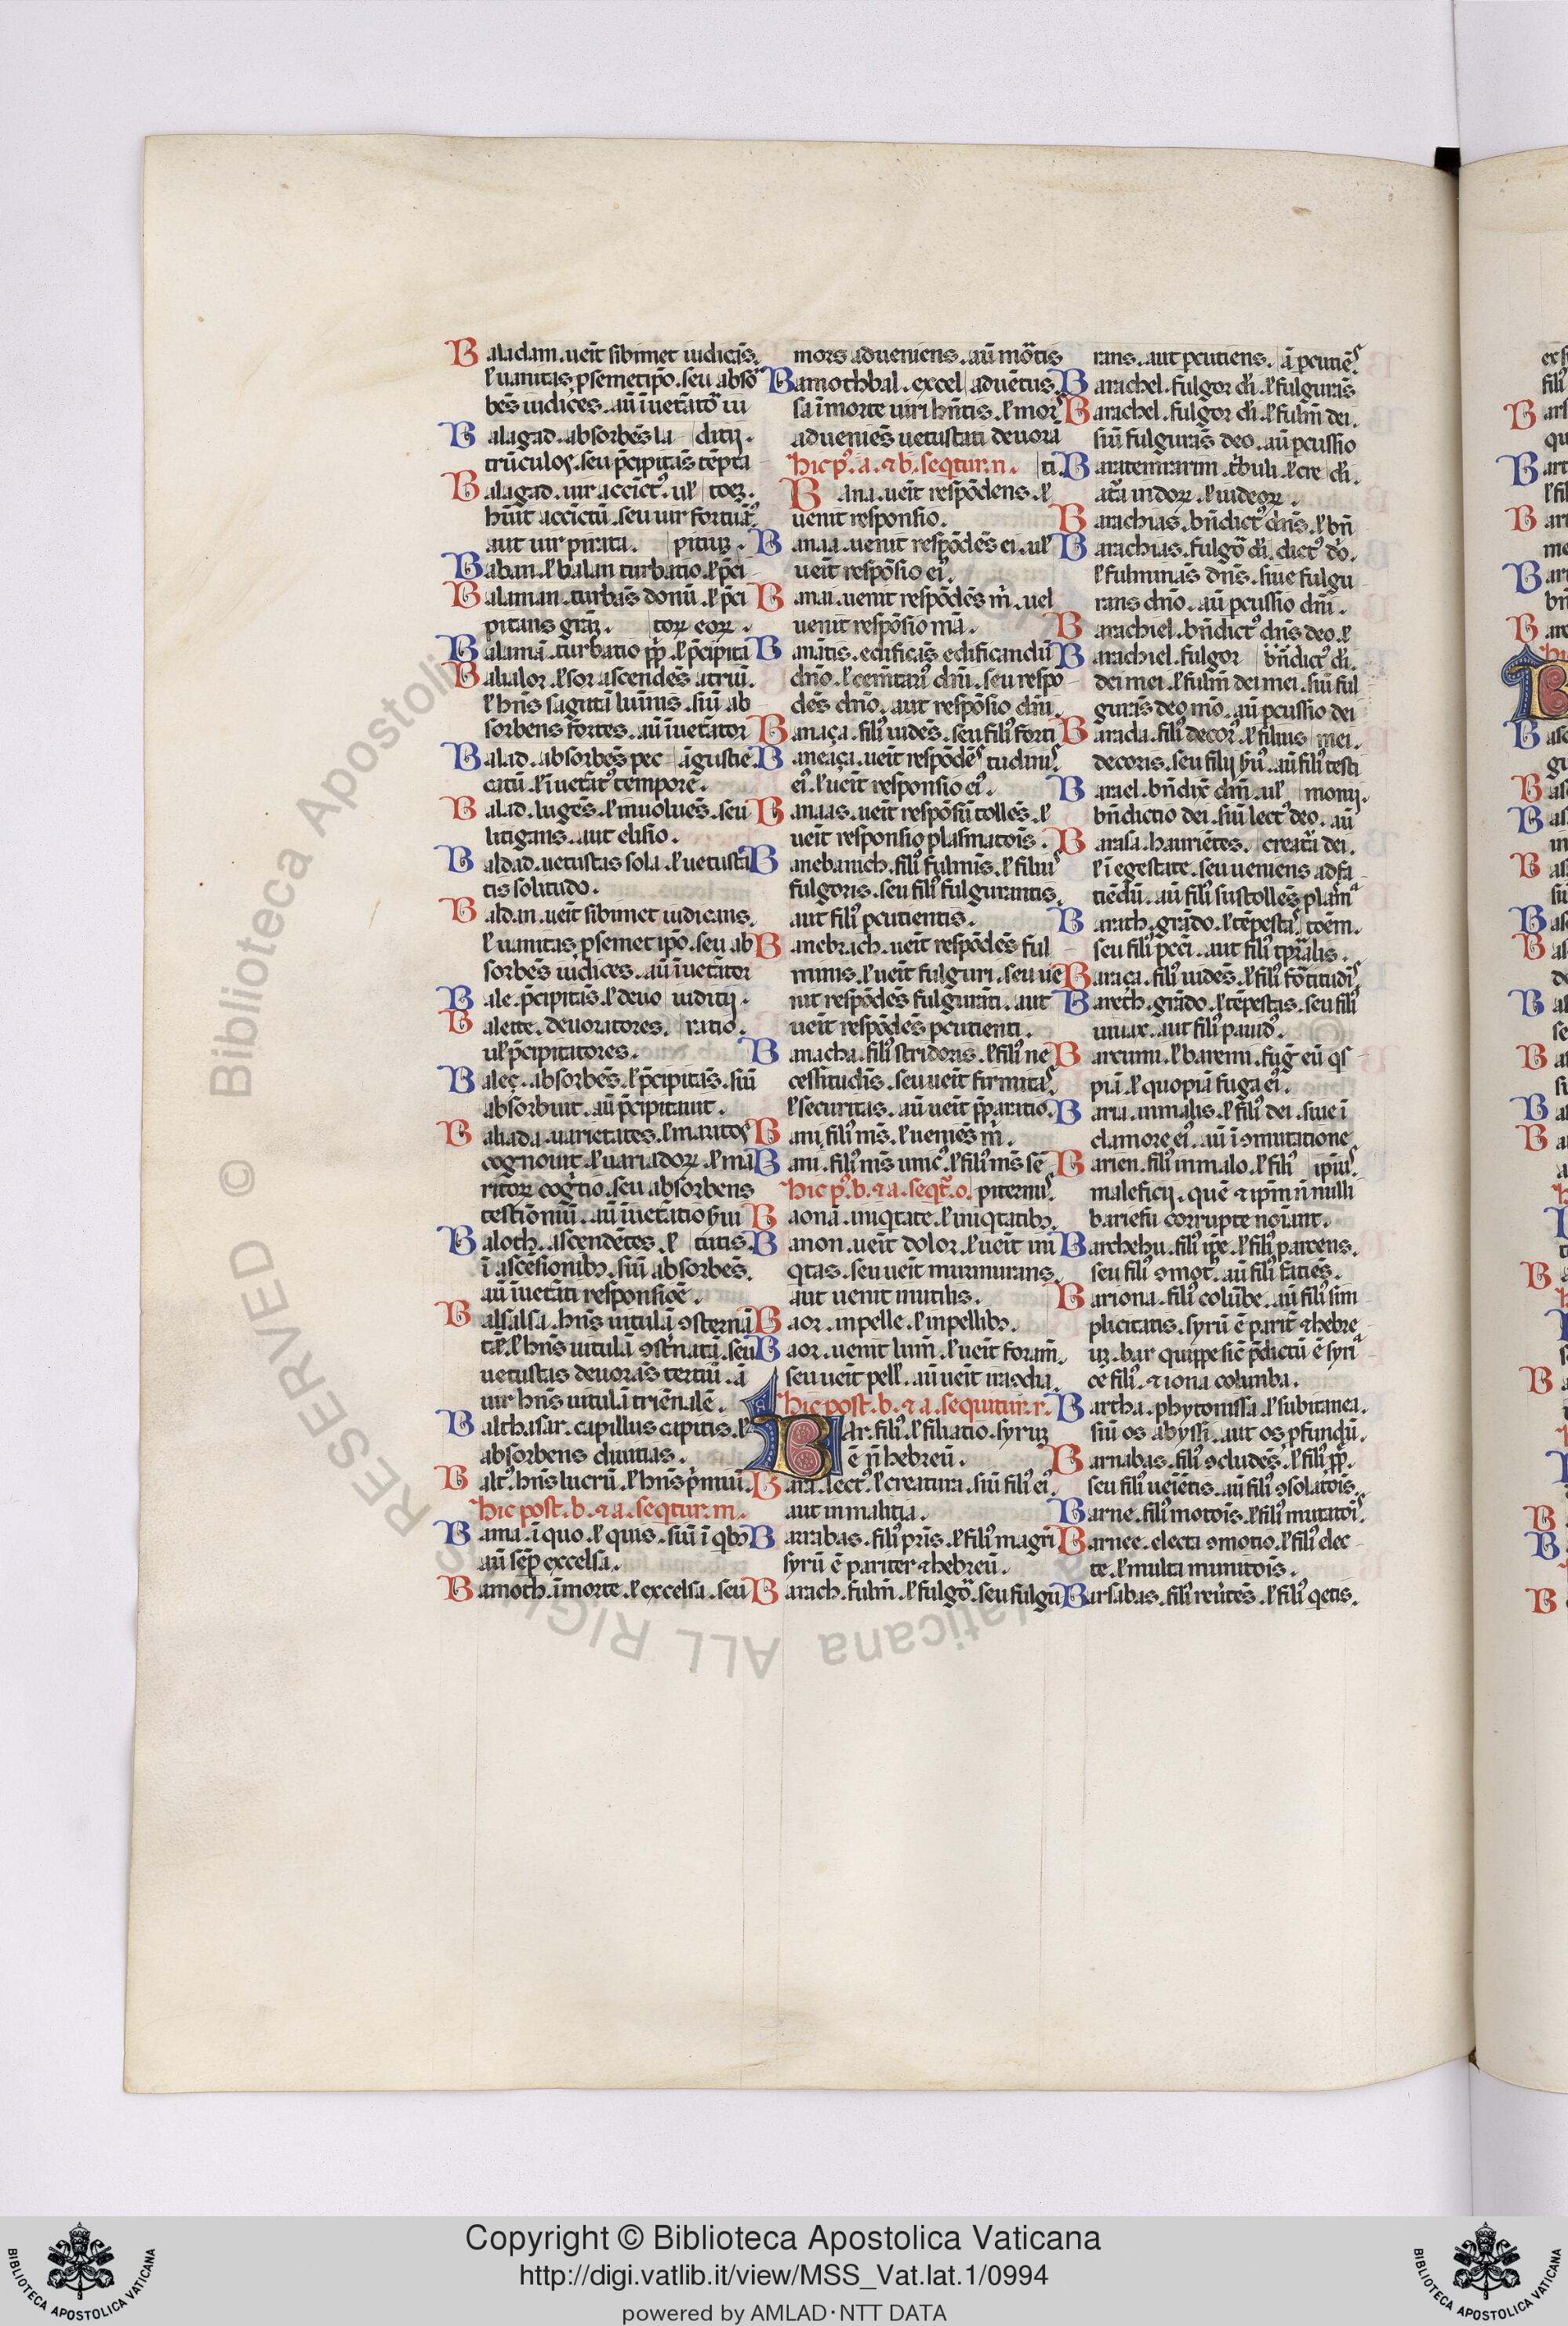 Baladam. ueīt sibimet iudicās.
ł uanitas p semetip̄o. seu absor
bēs iudices. aū īuetāto᷑ iu
Balagad. absorbēs la diciȷ.
trūculos. seu p̄cipitās tēpta
Balagad. uir accīctꝰ uł toeꝫ.
hūit accīctū. seu uir fortunā
aut uir pirata. pituꝫ.
Baban. ł balan turbatio. ł p̄ci
Balaman. turbās donū. ł p̄ci
pitans grāꝫ. toꝝ eoꝝ.
Balamā. turbatio p̄p̄. ł p̄cipita
Balalor. ł sor ascendēs atriū.
ł hn̄s saguta lumīs. siū ab
sorbens fortes. aū īuetātor
Balad. absorbēs pec āgustie.
catū. ł īuetātꝰ tempore.
Balad. lugēs. ł īuoluēs. seu
litigans. aut elisio.
Baldad. uetustas sola. ł uetusta
tis solitudo.
Baldan. ueīt sibimet iudicans.
ł uanitas p semet ip̄o. seu ab
sorbēs iudices. aū īuetātor
Bale. p̄cipitās. ł deuo iuditiȷ.
Balette. deuoratores. ratio.
uł p̄cipitatores.
Balec. absorbēs. ł p̄cipitās. siū
absorbuit. aū p̄cipitauit.
Baliada. uarietates. ł maritos
cognouit. ł uariadoꝝ. ł ma
ritoꝝ cogtio. seu absorbens
testioniū. aū īuetatio
Baloth. ascendētes. ł tutis.
ī ascēsionibꝫ. siū absorbēs.
aū īuetāti responsioē.
Balsalsa. hn̄s uitulā ꝯsternā
tē. ł hn̄s uitulā ꝯst̄natā. seu
uetustas deuorās tertiū. ā
uir hn̄s uitulā triēnalē.
Balthasar. capillus capitis. ł
absorbens diuitias.
Baltꝰ. hn̄s lucrū. ł hn̄s p̄mui.
Hic post. b. ⁊ a. seqtur. m.
Bama. ī quo. ł quis. siū ī qbꝫ
aū sēp excelsa.
Bamoth. ī morte. ł excelsa. seu
mors adueniens. aū mo᷑tis
Bamothbal. excel aduētus.
sa ī morte uiri hn̄tis. ł mor
adueniēs uetustati deuora
Hic pꝰ. a. ⁊ b. seqtur. n. ti.
Bana. ueīt respōdens. ł
uenit responsio.
Banaa. uenit respōdēs ei. uł
ueīt respōsio eiꝰ.
Banai. uenit respōdēs m̄. uel
uenit respōsio mā.
Banātis. edificās edificandū
dn̄o. ł cemītariꝰ dn̄i. seu respo
dēs dn̄o. aut respōsio dn̄i.
Banaça. filiꝰ uidēs. seu filiꝰ forti
Baneaça. ueīt respōdēs tudinis.
eiꝰ. ł ueīt responsio eiꝰ.
Banaas. ueīt respōsū tollēs. ł
ueīt responsio plasmatois.
Banebanich. filiꝰ fulmīs. ł filius
fulgoris. seu filiꝰ fulgurantis.
aut filiꝰ pcutientis.
Banebrach. ueīt respōdēs ful
minis. ł ueīt fulguri. seu ue
nit respōdēs fulgurāti. aut
ueīt respōdēs pcutienti.
Banacha. filiꝰ stridoris. ł filiꝰ ne
cessitudīs. seu ueīt firmitas.
ł securitas. aū ueīt p̄paratio.
Bani. filiꝰ ms̄. ł ueniēs m̄.
Bani. filiꝰ ms̄ unicꝰ. ł filiꝰ ms̄ sē
Hic pꝰ. b. ⁊ a. seqt᷑. o. piternus.
Baona. iniqtate. ł iniqtatibꝫ.
Banon. ueīt dolor. ł ueīt ini
qtas. seu ueīt murmurans.
aut uenit inutilis.
Baor. in pelle. ł in pellibꝫ.
Baor. uenit lum̄. ł ueīt foram̄.
seu ueīt pell. aū ueīt nascha.
Hic post. b. ⁊ a. sequitur. r.
Bar. filiꝰ. ł filiatio. syruꝫ
ē n̄ hebreū.
Bara. lectꝰ. ł creatura. siū filiꝰ eiꝰ.
aut in malitia.
Barrabas. filiꝰ pris. ł filiꝰ magri
syrū ē pariter ⁊ hebreū.
Barach. fulm̄. ł fulgo᷑. seu fulgu
rans. aut pcutiens. ā pcutiēs
Barachel. fulgor di. ł fulgurās
Barachel. fulgor di. ł fulm̄ dei.
siū fulgurās deo. aū pcussio
Baratemrarim. tbuli. ł cre di.
atā indoꝝ. ł iudeoꝝ.
Barachias. bn̄dictꝰ dn̄s. ł bn̄
Barachias. fulgo᷑ di. dictꝰ do.
ł fulminās dn̄s. siue fulgu
rans dn̄o. aū pcussio dn̄i.
Barachiel. bn̄dictꝰ dn̄s deo. ł
Barachiel. fulgor bn̄dictꝰ di.
dei mei. ł fulm̄ dei mei. siū ful
gurās deo mō. aū pcussio dei
Barada. filiꝰ decor. ł filius mei.
decoris. seu filiȷ hꝰ. aū filiꝰ testi
Barael. bn̄dix dn̄i. uł moniȷ.
bn̄dictio dei. siū lectꝰ deo. aū
Barasa. hauriētes. creatā dei.
ł ī egestate. seu ueniens ad fa
tiēdū. aū filiꝰ sustollēs plasma
Barath. grādo. ł tēpestas toēm.
seu filiꝰ pcci. aut filiꝰ tpralis.
Baraça. filiꝰ uidēs. ł filiꝰ fortitudīs
Bareth. grādo. ł tēpestas. seu filiꝰ
uiuax. aut filiꝰ pauidꝰ.
Barcumi. ł baremi. fuḡ eū qs
piā. ł quopiā fuga eiꝰ.
Baria. in malis. ł filiꝰ dei. siue ī
clamore eiꝰ. aū ī ꝯmutatione
Barien. filiꝰ in malo. ł filiꝰ ipius
maleficiȷ. quē ⁊ ipm̄ n̄ nulli
bariesu corrupte noīant.
Barchehu. filiꝰ ip̄e. ł filiꝰ parcens.
seu filiꝰ ꝯmotꝰ. aū filiꝰ faciēs.
Bariona. filiꝰ colūbe. aū filiꝰ sim
plicitatis. syrū ē parit᷑ ⁊ hebre
uꝫ. bar quippe sic p̄dictū ē syria
ce filiꝰ. ⁊ iona columba.
Bartha. phytonissa. ł subitanea.
siū os abyssi. aut os pfundū.
Barnabas. filiꝰ ꝯcludēs. ł filiꝰ p̄p̄.
seu filiꝰ ueīetis. aū filiꝰ ꝯsolatois.
Barne. filiꝰ motois. ł filiꝰ mutatois.
Barnee. electa ꝯmotio. ł filiꝰ elec
te. ł multa munitois.
Barsabas. filiꝰ reuertēs. ł filiꝰ qetis.
Copyright © Biblioteca Apostolica Vaticana
http://digi.vatlib.it/view/MSS_Vat.lat.1/0994
powered by AMLAD · NTT DATA